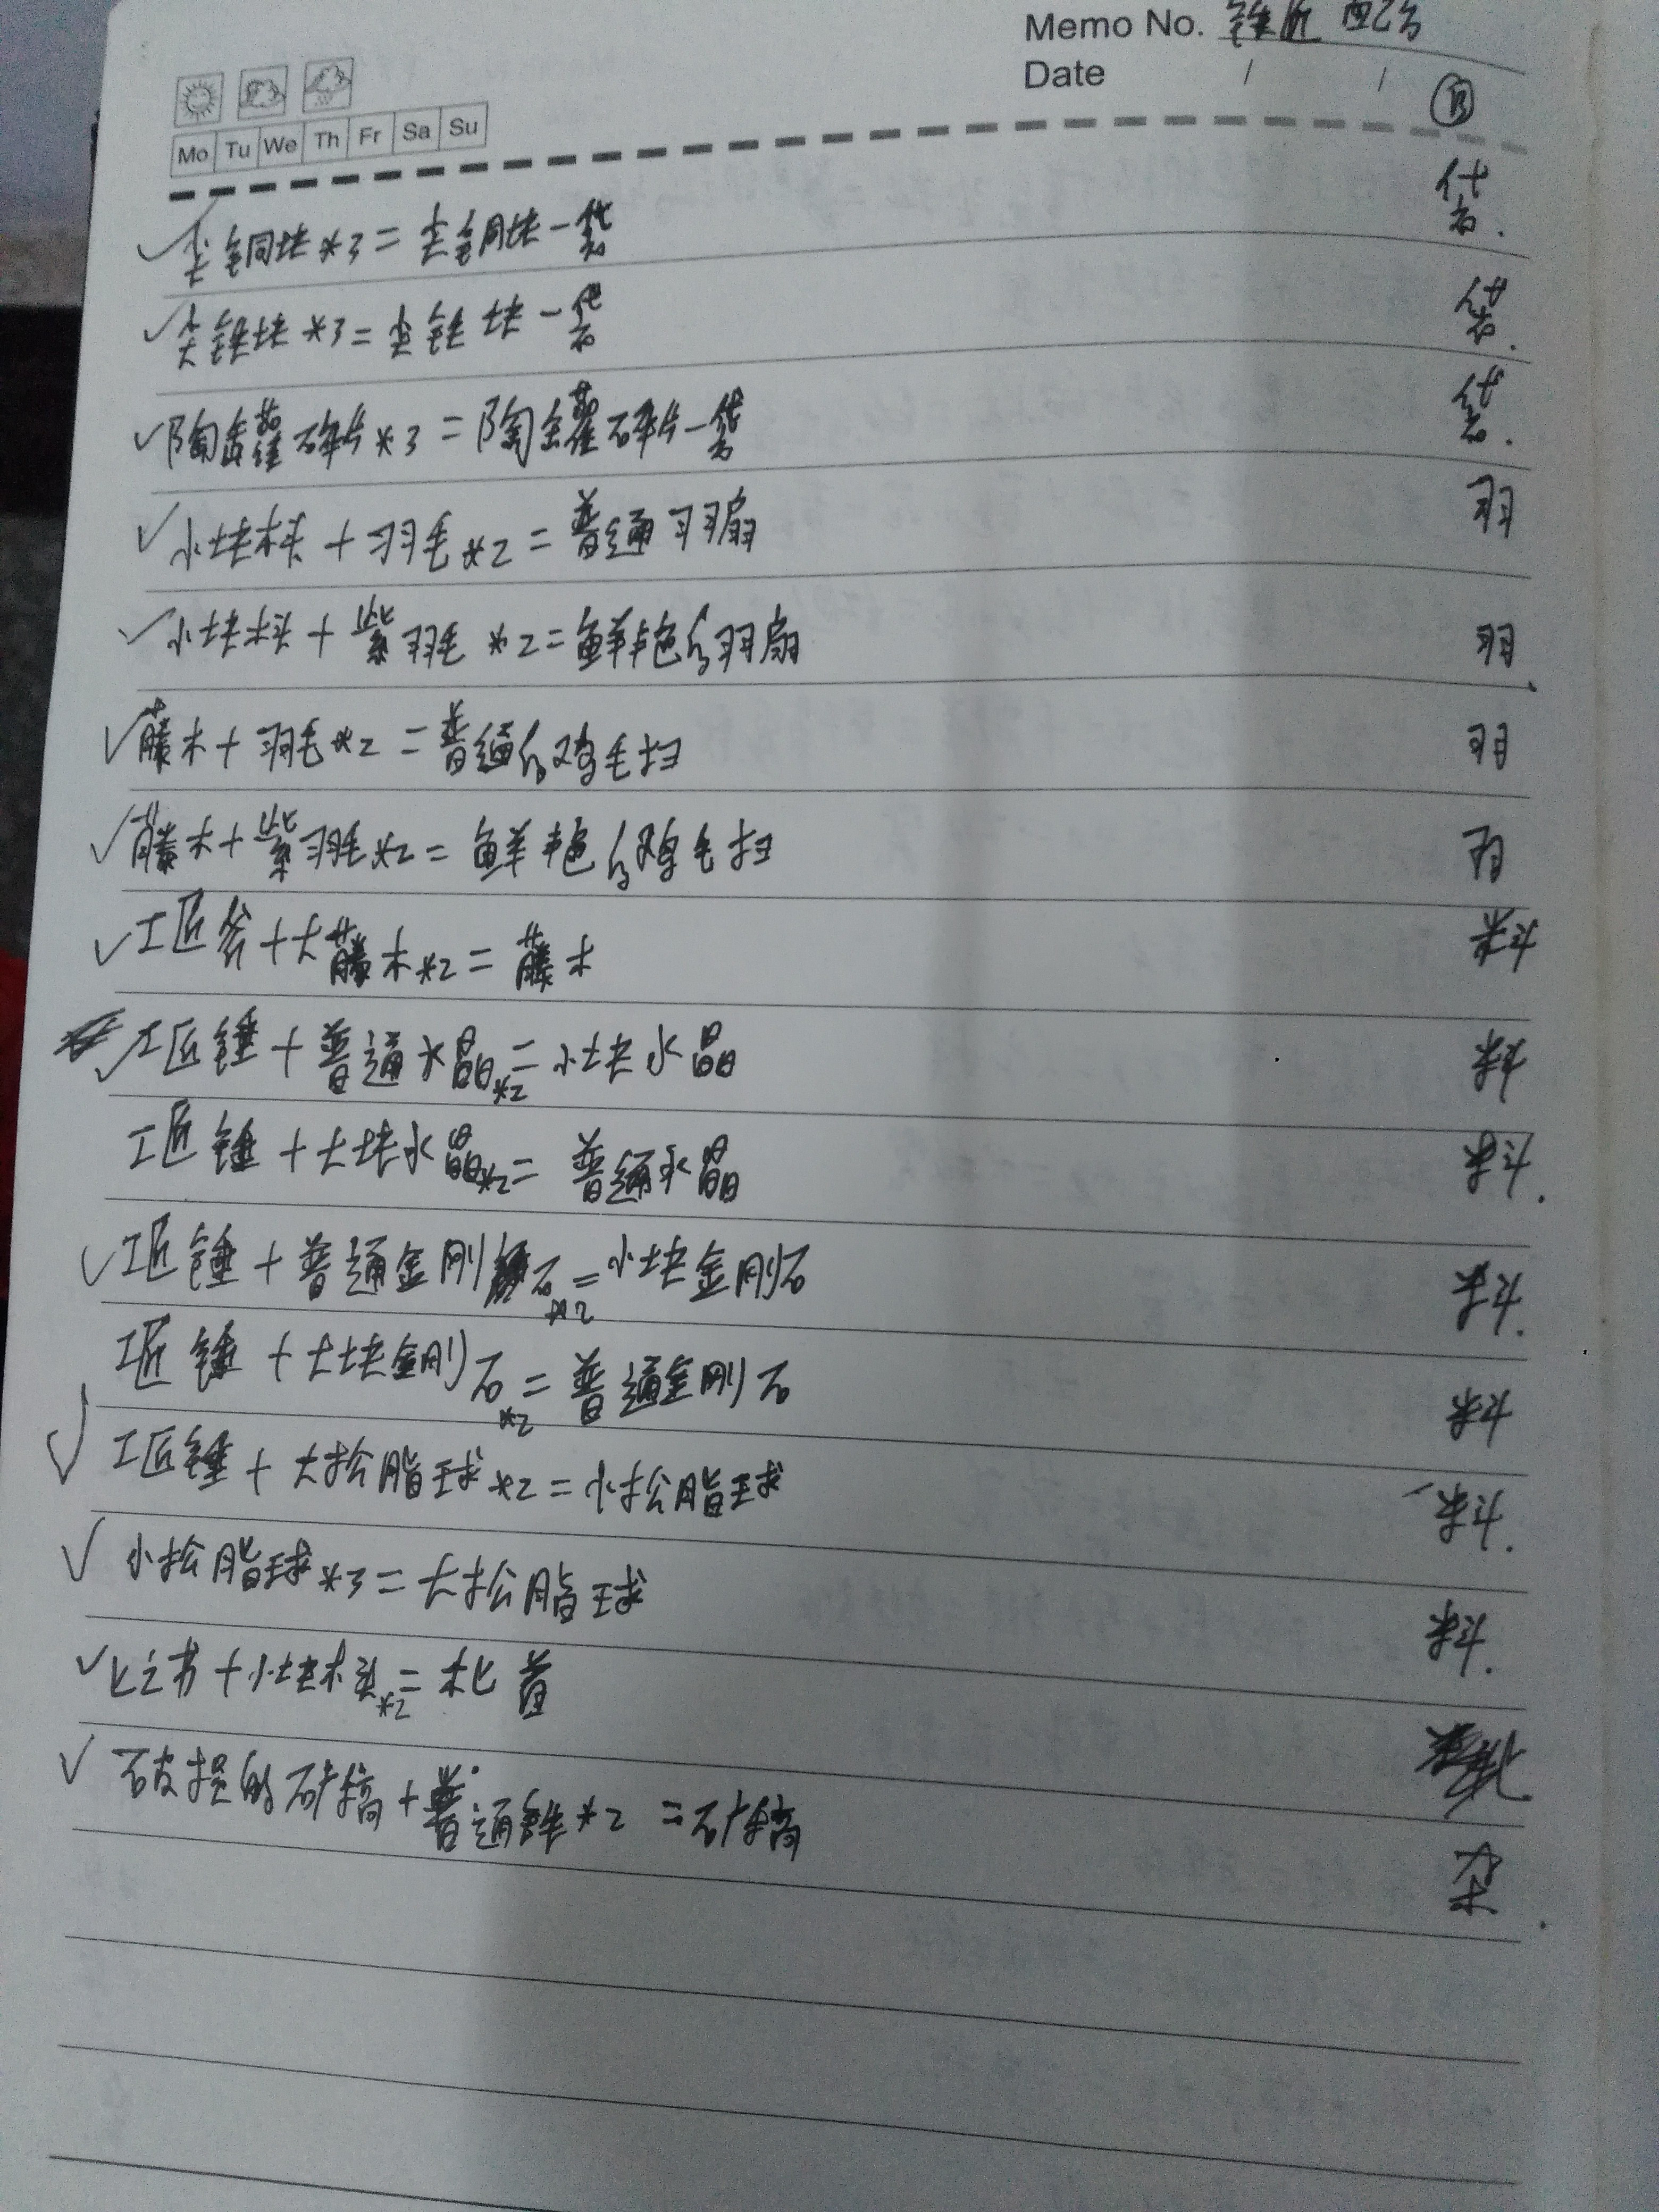 Memo No. 錘近 配合
Date / /
Mo Tu We Th Fr Sa Su
尖銅块*3=尖銅块一袋 袋
尖鉄块*3=尖鉄块一袋 袋
陶罐碎片*3=陶罐碎片一袋 袋
小块木头+羽毛*2=普通羽扇 羽
小块木头+紫羽毛*2=鲜艳的羽扇 羽
藤木+羽毛*2=普通的鸡毛扫 羽
藤木+紫羽毛*2=鲜艳的鸡毛扫 羽
工匠斧+大藤木*2=藤木 料
工匠錘+普通水晶*2=小块水晶 料
工匠錘+大块水晶*2=普通水晶 料
工匠錘+普通金刚石*2=小块金刚石 料
工匠錘+大块金刚石*2=普通金刚石 料
工匠錘+大松脂球*2=小松脂球 料
小松脂球*3=大松脂球 料
匕之书+小块木头*2=木匕首
破损的矿镐+普通*2=矿镐 杂